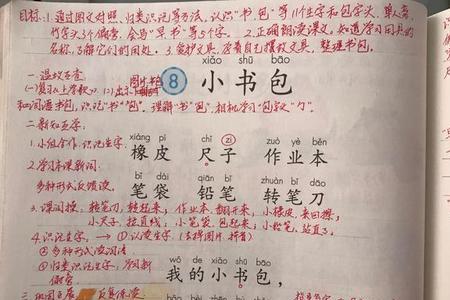 目标:1.通过图文对照、归类识记等方法,认识"书、包"等11个生字和包字头、单人旁、
竹字头3个偏旁,会写"早、书"等5个字。2.正确朗读课文,知道学习用具的
名称,了解它们的用处。3.爱护文具,学着自己摆放文具,整理书包。
xiǎo shū bāo
8 小书包
一.温故
(一)复习
和词语书包,识记"书""包"。理解"书""包",相机学习"包字头"勹"。
二.
xiàng pí chǐ zi zuò yè běn
1.小组合作,识记生字。 橡皮 尺子 作业本
2.学习本课新词:
bǐ dài qiān bǐ zhuàn bǐ dāo
多种形式反馈读。 笔袋 铅笔 转笔刀
3.课间操:转笔刀,转起来;作业本,翻开来;小橡皮,来回擦;
小尺子,拉直线;小笔袋,包起来;小铅笔,站直了。
4.识记生字,→①认读生字(去掉图片 拼音)
②多种形式读词语
wǒ de xiǎo shū bāo
③归类识记生字,学习新 我的小书包,
偏旁